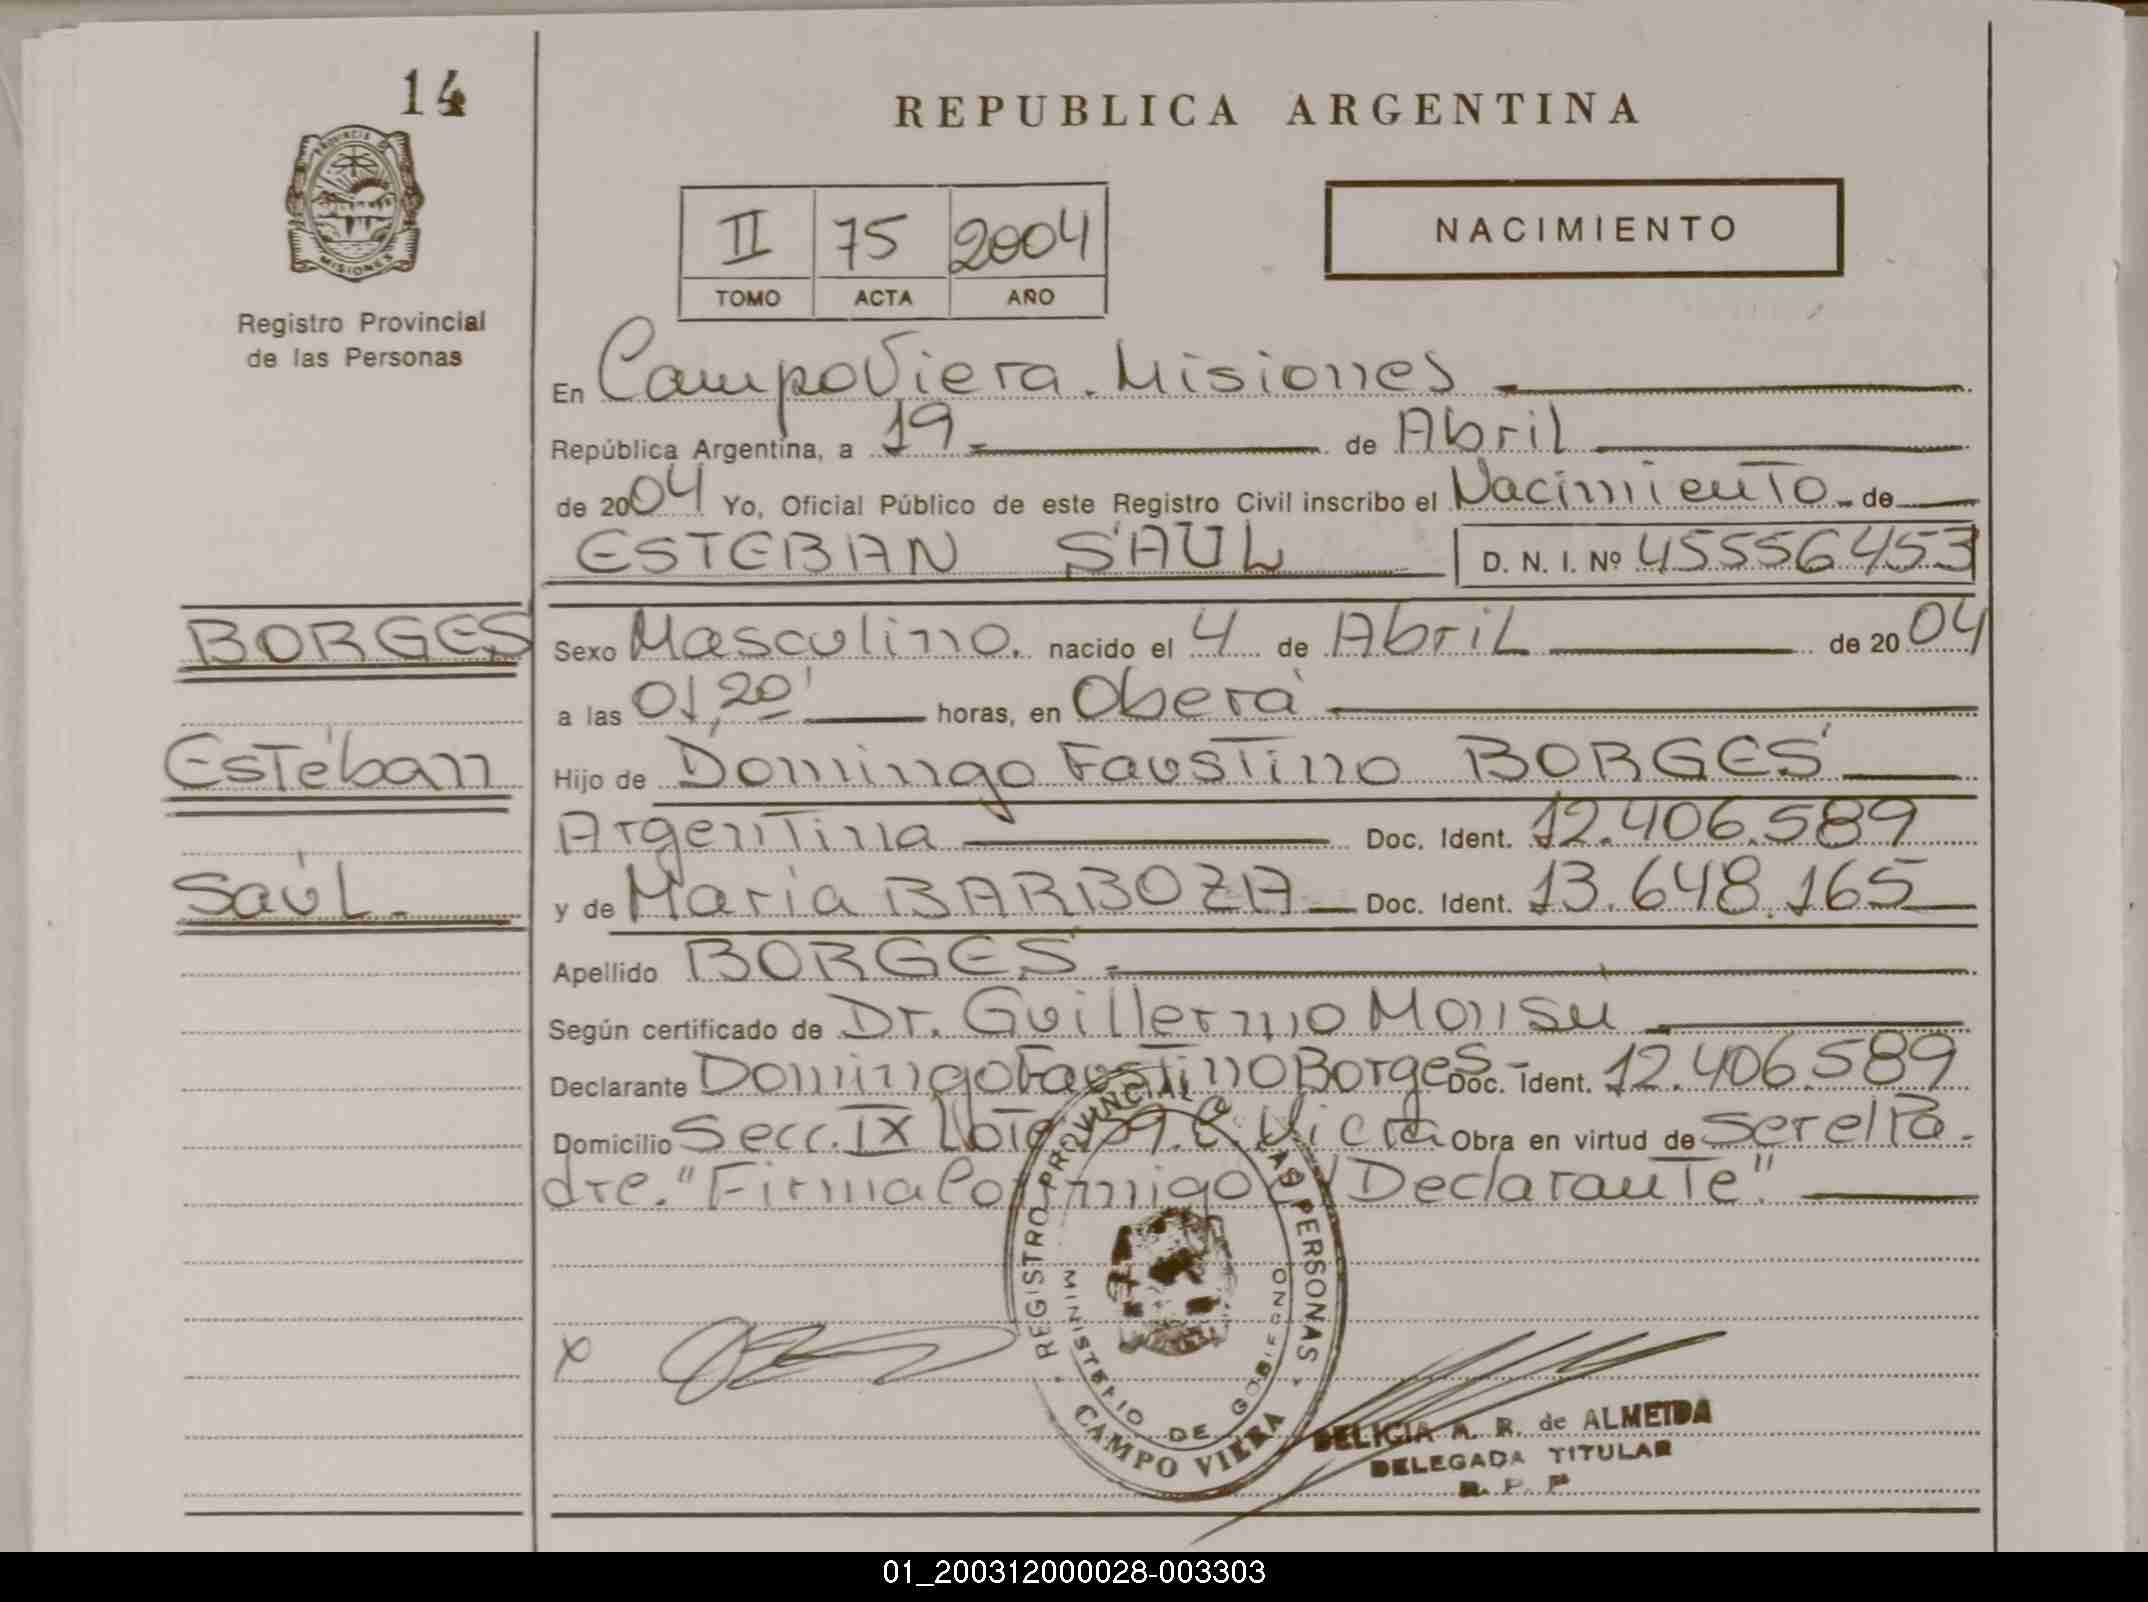 14
REPUBLICA ARGENTINA
PROVINCIA DE
MISIONES
Registro Provincial
de las Personas
II 75 2004
TOMO ACTA AÑO
NACIMIENTO
En Campo Viera. Misiones
República Argentina, a 19 de Abril
de 2004 Yo, Oficial Público de este Registro Civil inscribo el Nacimiento de
ESTEBAN SAUL D. N. I. Nº 45556453
BORGES
Esteban
Saúl.
Sexo Masculino. nacido el 4 de Abril de 2004
a las 01,20' horas, en Oberá
Hijo de Domingo Faustino BORGES
Argentina Doc. Ident. 12.406.589
y de Maria BARBOZA Doc. Ident. 13.648.165
Apellido BORGES
Según certificado de Dr. Guillermo Monsu
Declarante Domingo Faustino Borges Doc. Ident. 12.406.589
Domicilio Secc. IX Lote Obra en virtud de ser el Pa-
dre. "Firma migo Declarante"
REGISTRO PROVINCIAL LAS PERSONAS
MINISTERIO DE GOBIERNO
CAMPO VIERA
x
DELICIA A. R. de ALMEIDA
DELEGADA TITULAR
R. P. P
01_200312000028-003303